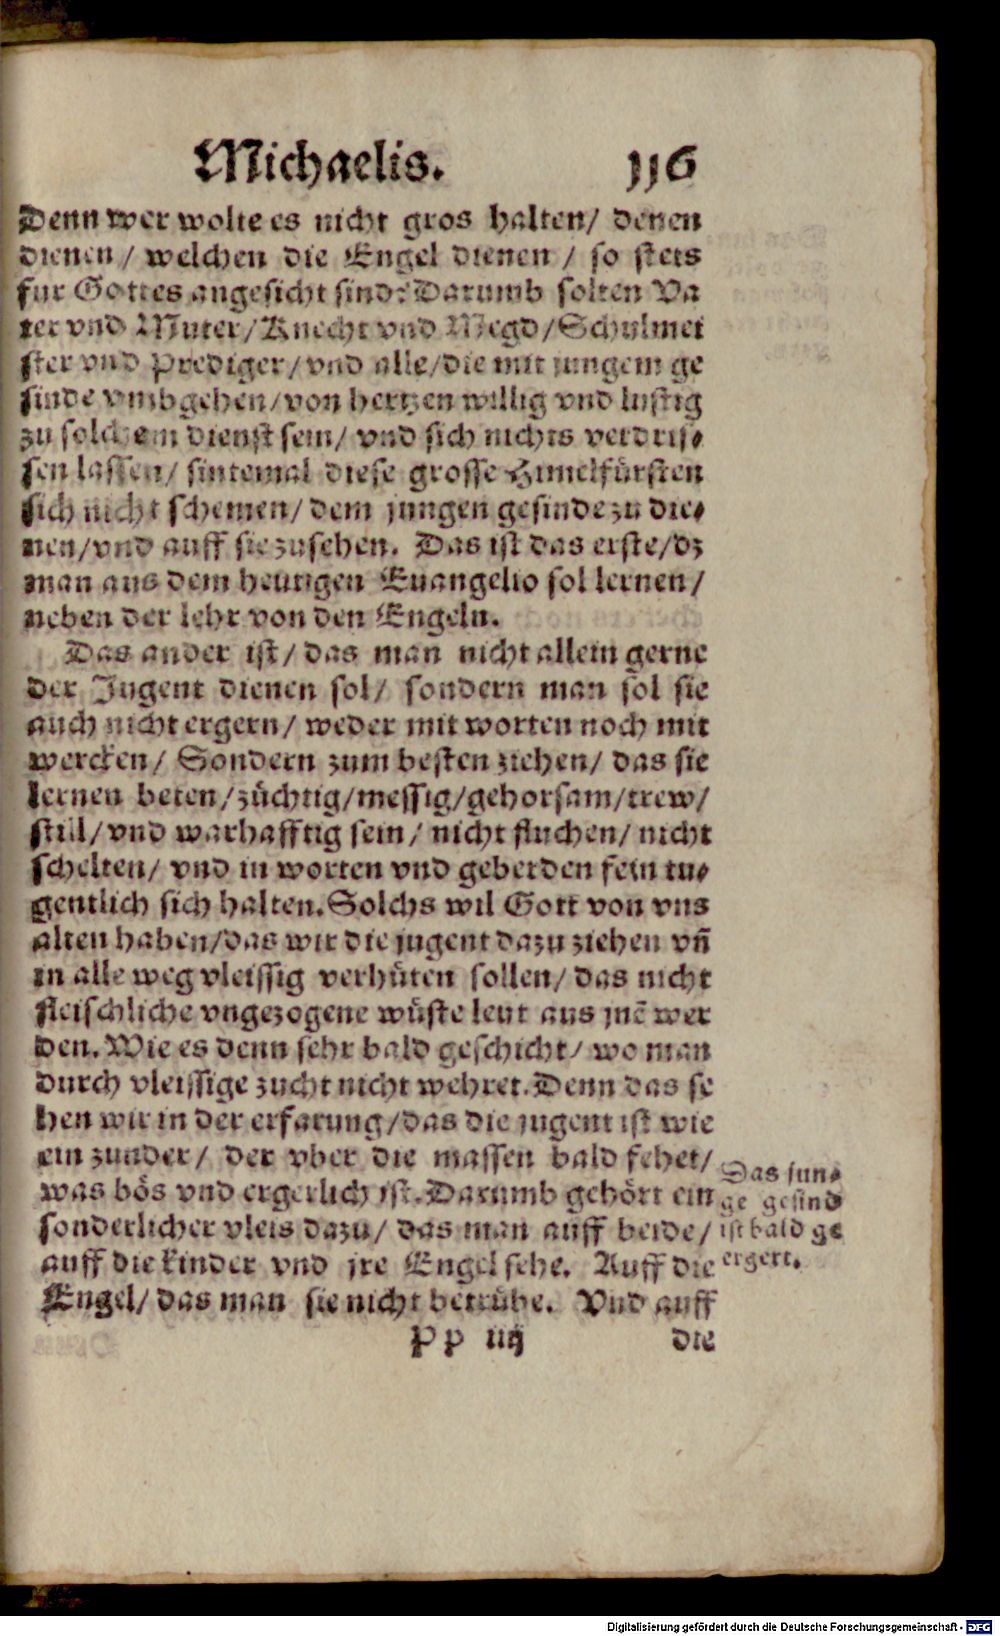 Michaelis. 116
Denn wer wolte es nicht gros halten/ denen
dienen/ welchen die Engel dienen/ so stets
fur Gottes angesicht sind? Darumb solten Va
ter vnd Muter/Knecht vnd Megd/Schulmei
ster vnd Prediger/vnd alle/die mit jungem ge
sinde vmbgehen/von hertzen willig vnd lustig
zu solchem dienst sein/ vnd sich nichts verdris-
sen lassen/ sintemal diese grosse Himelfürsten
sich nicht schemen/ dem jungen gesinde zu die-
nen/vnd auff sie zusehen. Das ist das erste/dz
man aus dem heutigen Euangelio sol lernen/
neben der lehr von den Engeln.
Das ander ist/ das man nicht allein gerne
der Jugent dienen sol/ sondern man sol sie
auch nicht ergern/ weder mit worten noch mit
wercken/ Sondern zum besten ziehen/ das sie
lernen beten/züchtig/messig/gehorsam/trew/
still/vnd warhafftig sein/ nicht fluchen/ nicht
schelten/ vnd in worten vnd geberden fein tu-
gentlich sich halten. Solchs wil Gott von vns
alten haben/das wir die jugent dazu ziehen vñ
in alle weg vleissig verhüten sollen/ das nicht
fleischliche vngezogene wüste leut aus jnē wer
den. Wie es denn sehr bald geschicht/ wo man
durch vleissige zucht nicht wehret. Denn das se
hen wir in der erfarung/das die jugent ist wie
ein zunder/ der vber die massen bald fehet/
was bös vnd ergerlich ist. Darumb gehört ein
sonderlicher vleis dazu/ das man auff beide/
auff die kinder vnd jre Engel sehe. Auff die
Engel/ das man sie nicht betrübe. Vnd auff
Das jun-
ge gesind
ist bald ge
ergert.
Pp iiij die
Digitalisierung gefördert durch die Deutsche Forschungsgemeinschaft - DFG